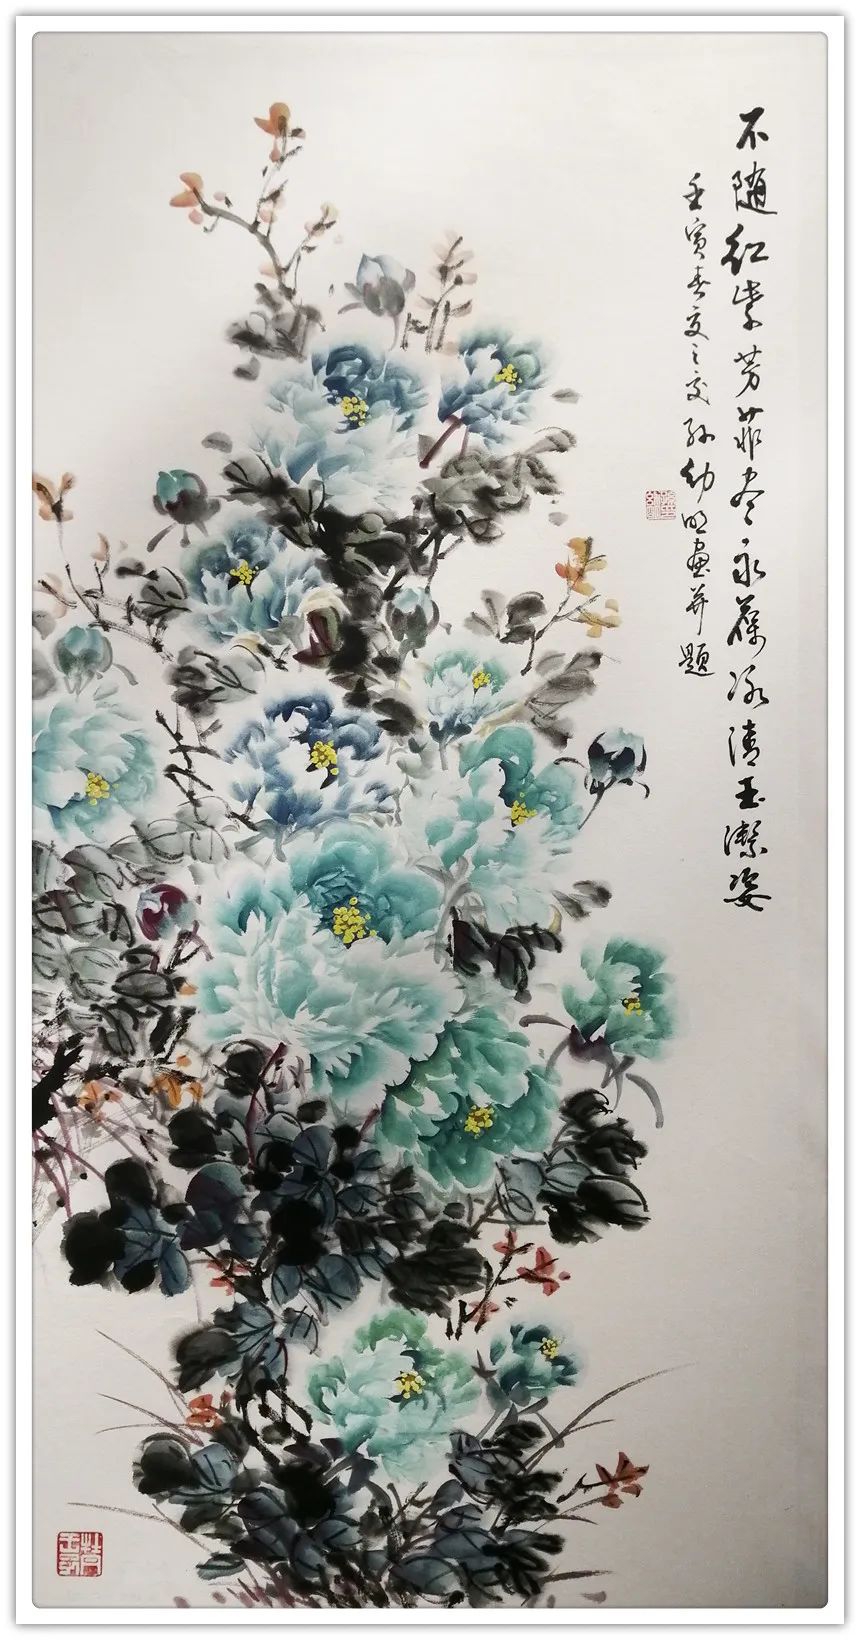 不随红紫芳菲尽永葆冰清玉洁姿
壬寅春夏之交孙幼明画并题